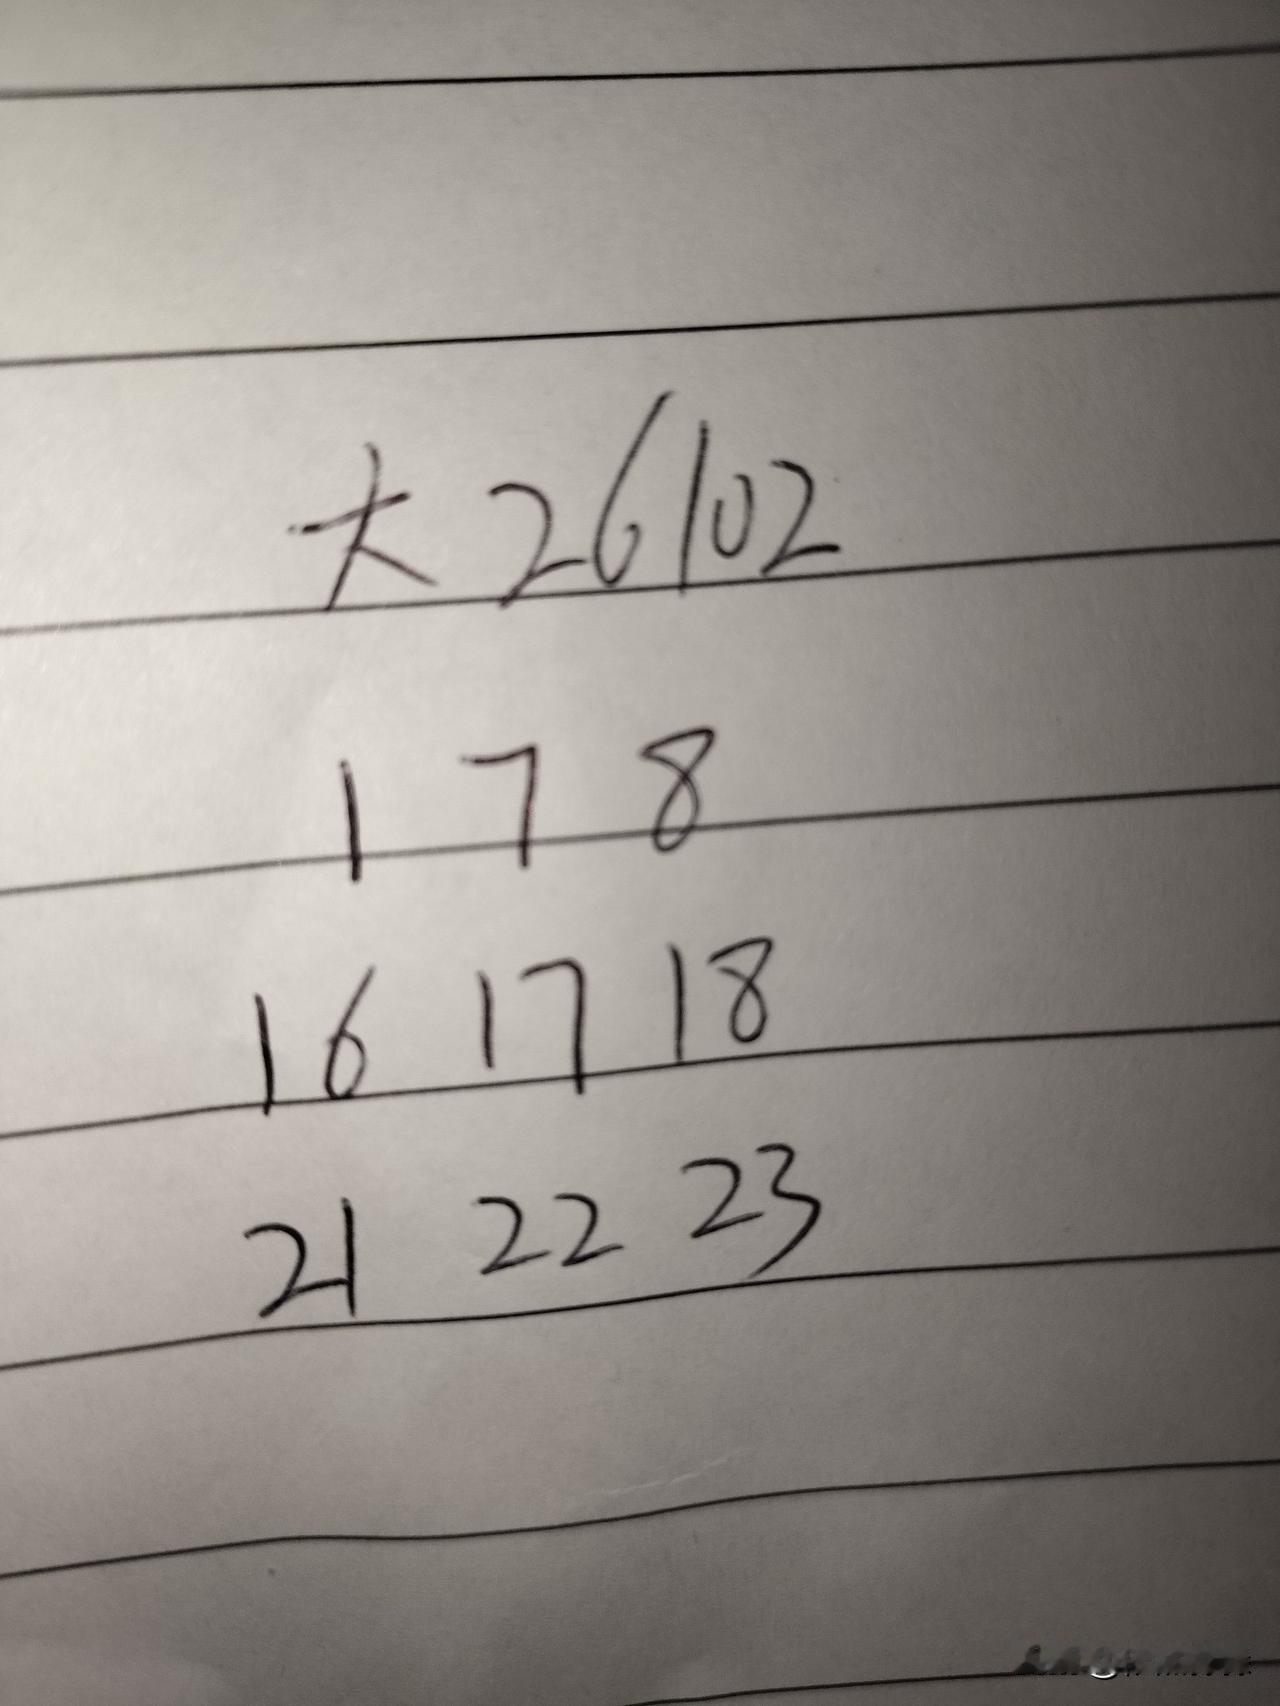 大26102
1 7 8
16 17 18
21 22 23